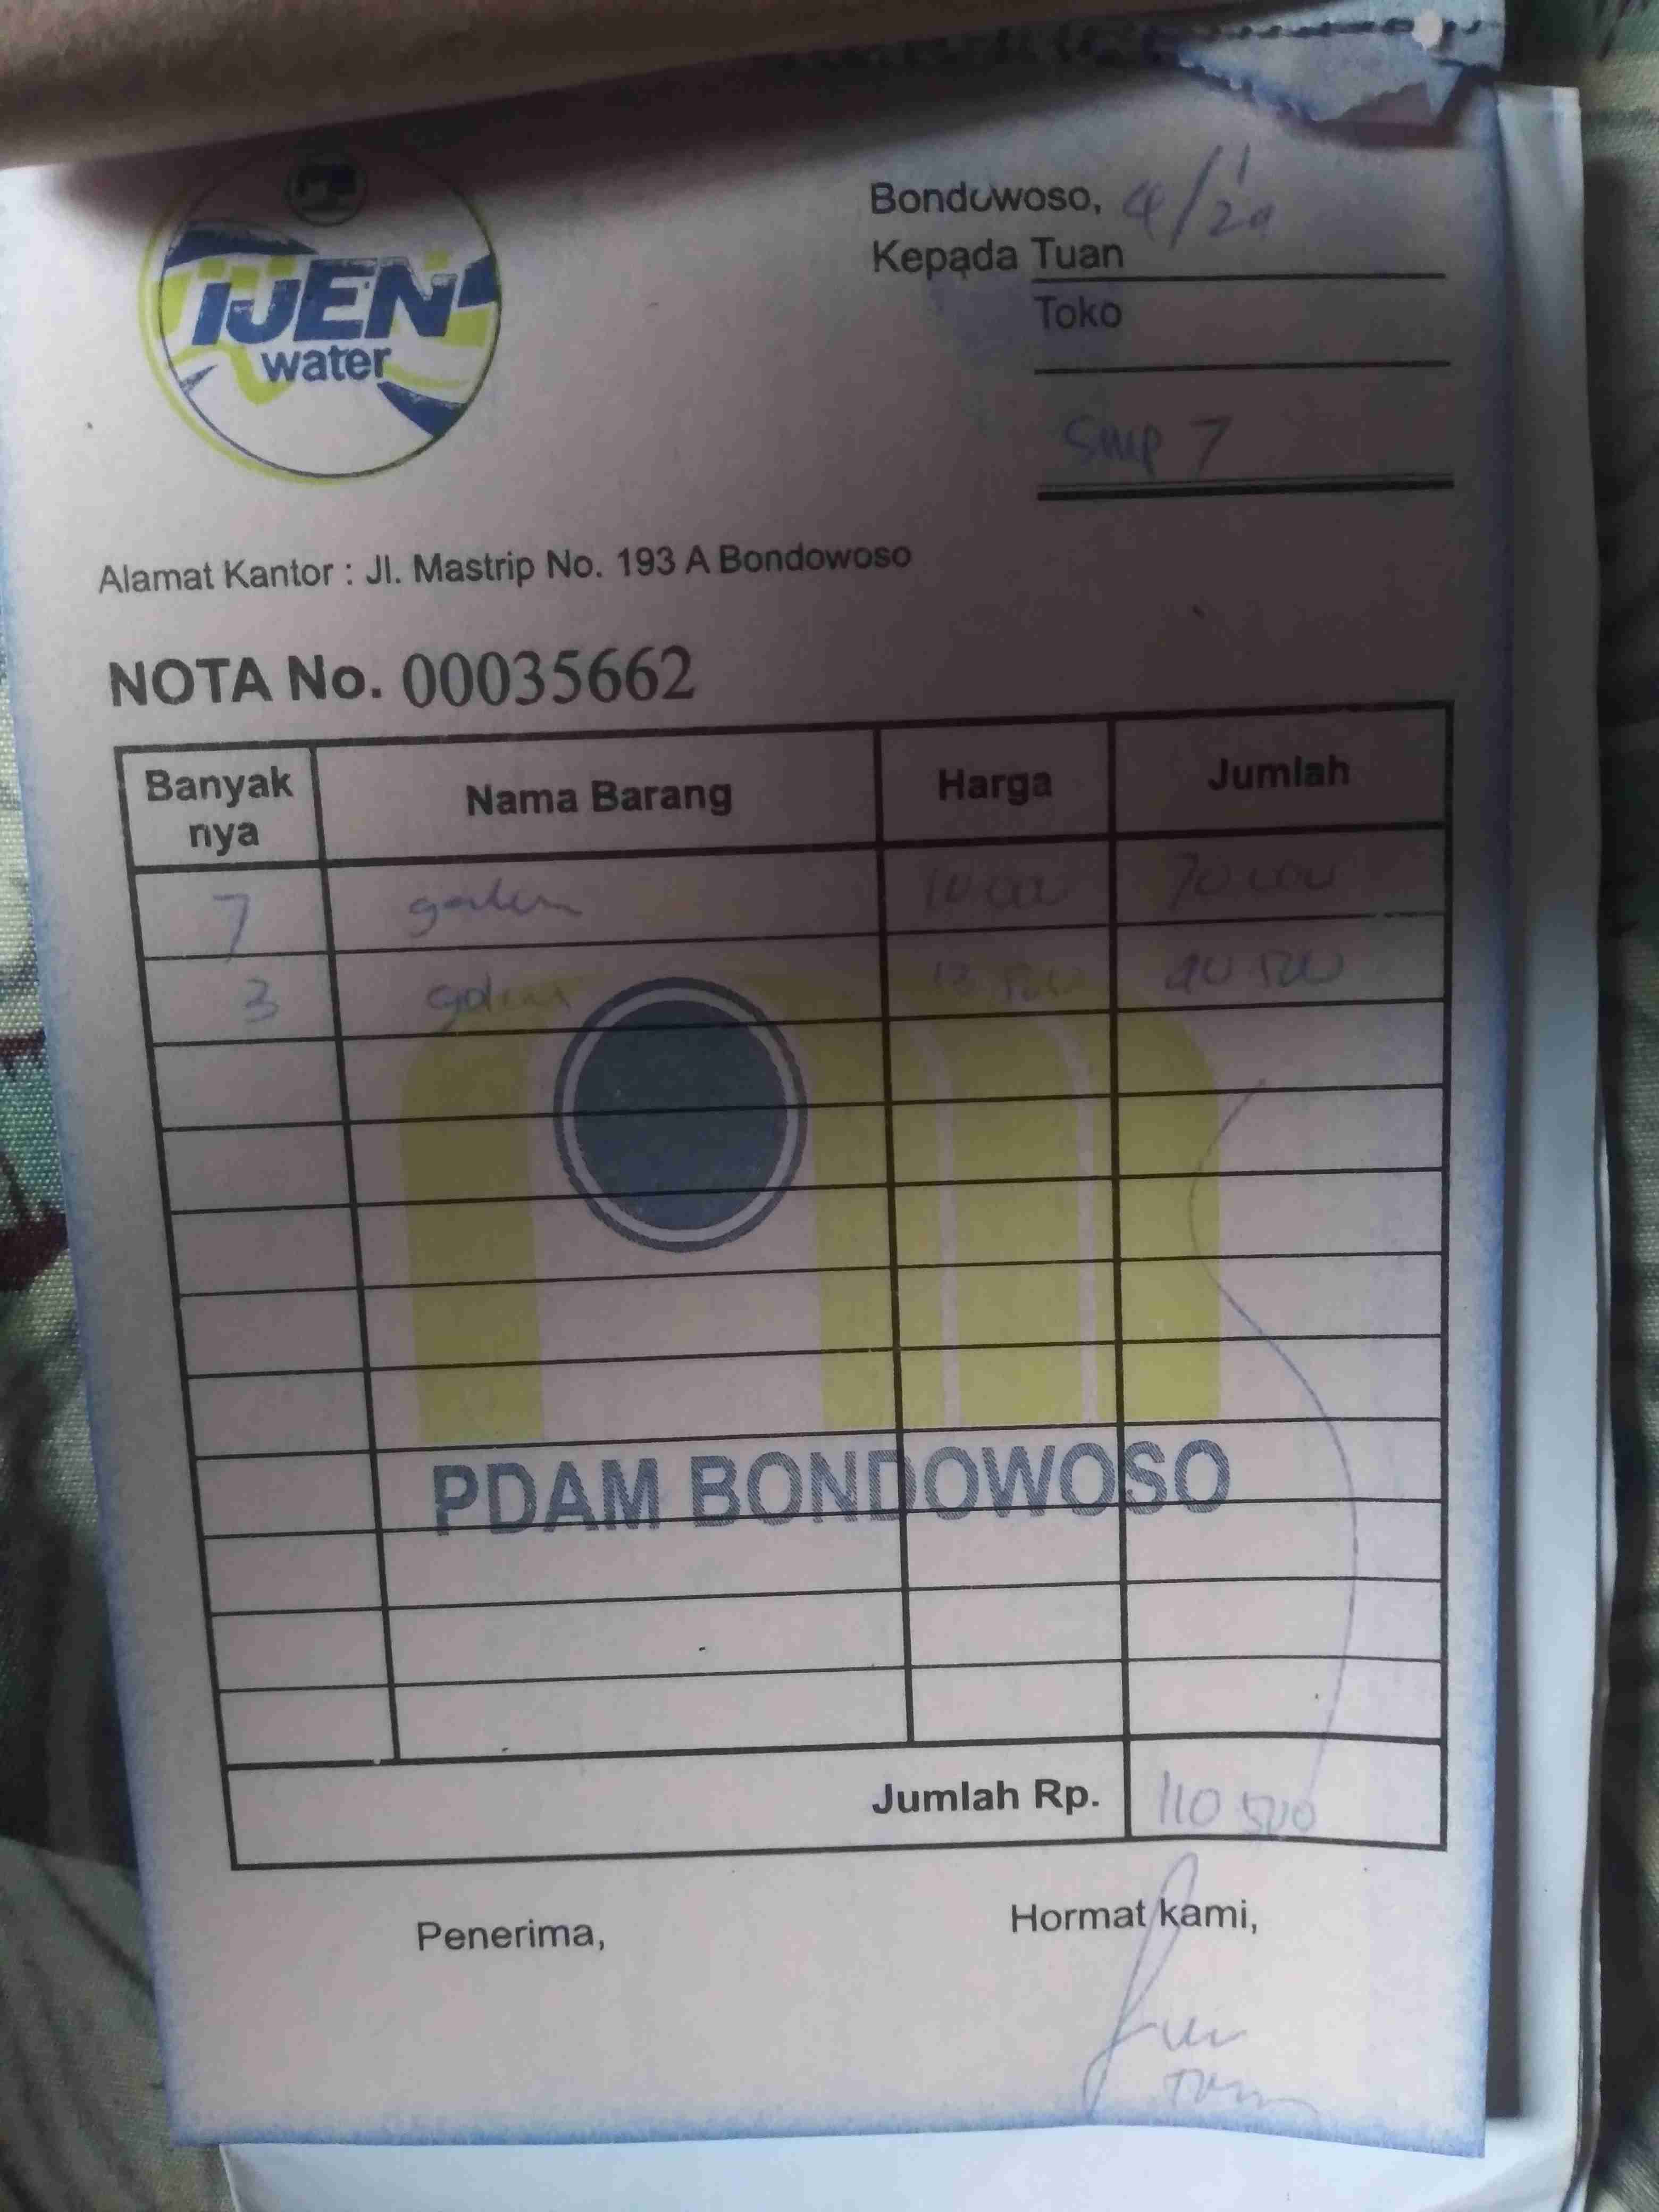 iJEN
water
Bondowoso, 4/1 20
Kepada Tuan
Toko
SMP 7
Alamat Kantor : Jl. Mastrip No. 193 A Bondowoso
NOTA No. 00035662
Banyak nya Nama Barang Harga Jumlah
7 galon 10.000 70.000
3 galon 13.500 40.500
PDAM BONDOWOSO
Jumlah Rp. 110.500
Penerima, Hormat kami,